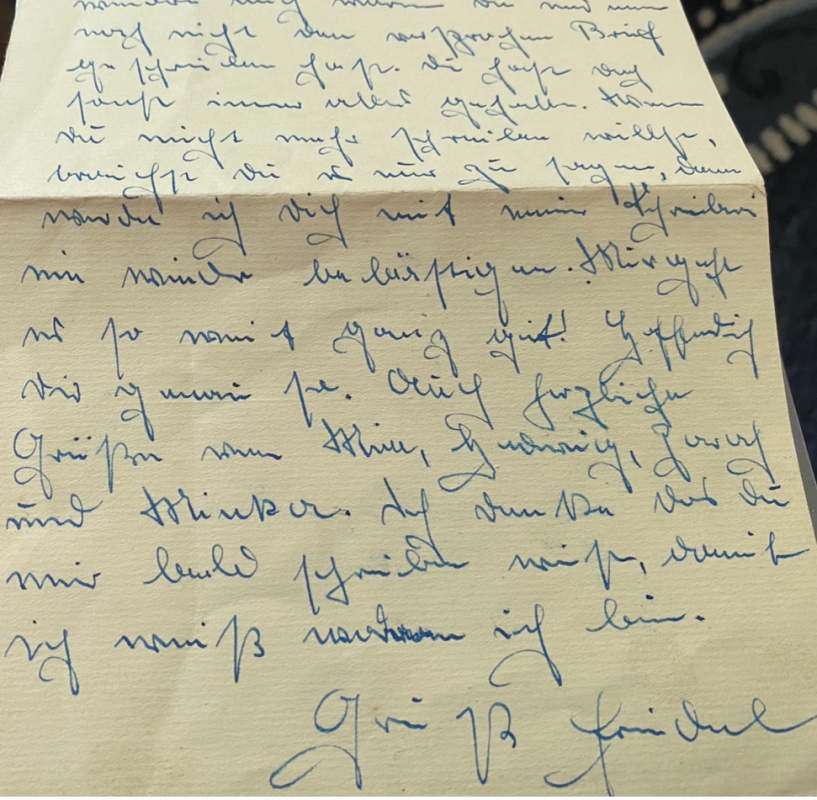 noch nicht den versprochen Brief
geschrieben hast. Du hast doch
sonst immer alles gehalten. Wenn
Du nicht mehr schreiben willst,
brauchst Du es nur zu sagen, dann
werde ich Dich mit meiner Schreiberei
nie wieder belästigen. Mir geht
es so weit ganz gut! Hoffendlich
Dir genau so. Auch herzliche
Grüße von Hedwig,
und Minka. Ich denke das Du
mir bald schreiben wirst, damit
ich weiß woran ich bin.
Gruß Friedel